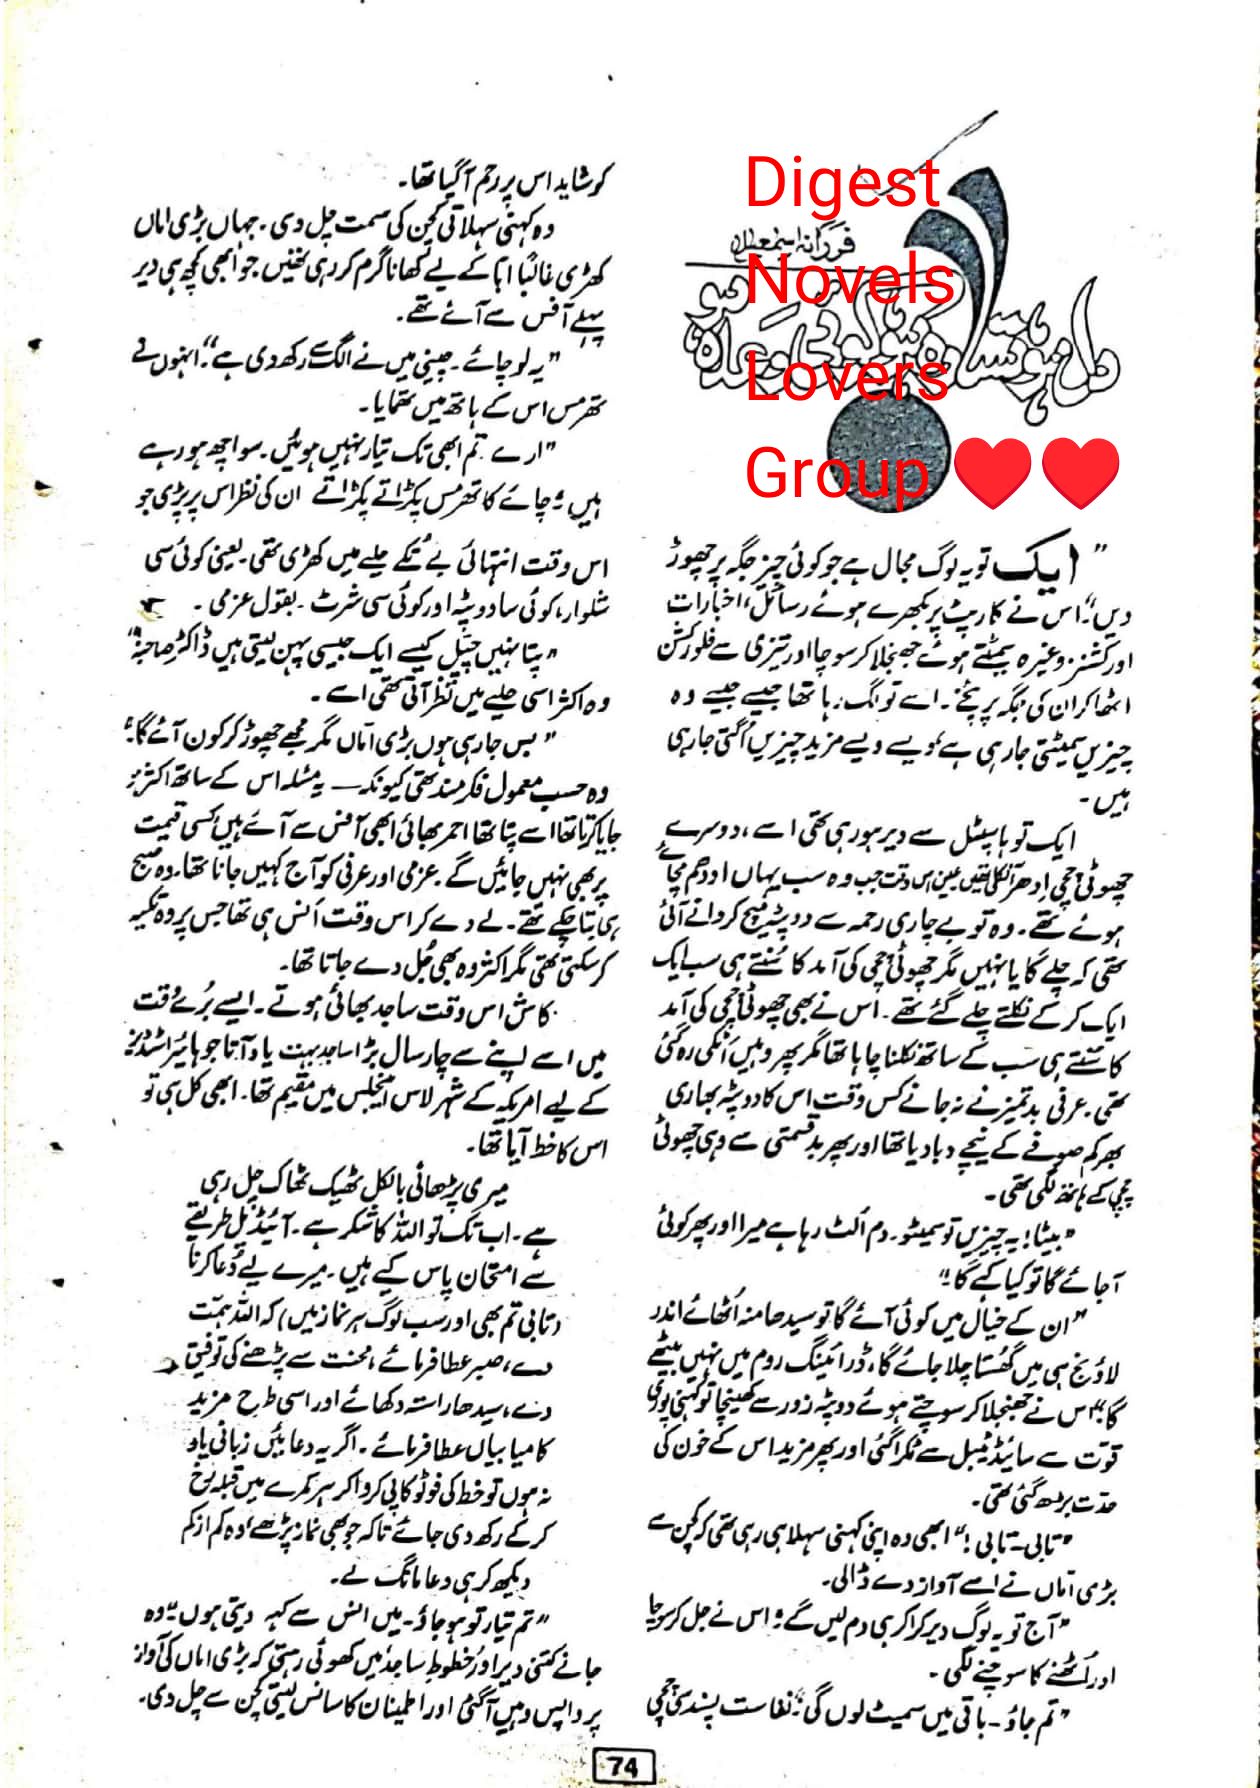 Digest
Novels
Lovers
Group ♥♥
فرزانہ اسمعیل
دل ہو سادہ تو کوئی وعدہ
"ایک تو یہ لوگ مجال ہے جو کوئی چیز جگہ پر چھوڑ
دیں" اس نے کارپٹ پر بکھرے ہوئے رسائل، اخبارات
اور کشنز وغیرہ سمیٹتے ہوئے جھنجلا کر سوچا اور تیزی سے فلور کشن
اٹھا کر ان کی جگہ پر پٹخے۔ اسے تو لگ رہا تھا جیسے جیسے وہ
چیزیں سمیٹتی جا رہی ہے ویسے ویسے مزید چیزیں اُگتی جا رہی
ہیں۔
ایک تو ہاسپٹل سے دیر ہو رہی تھی اسے، دوسرے
چھوٹی چچی ادھر آ نکلی تھیں عین اس وقت جب وہ سب یہاں اودھم مچائے
ہوئے تھے۔ وہ تو بے چاری رحمہ سے دوپٹہ میچ کروانے آئی
تھی کہ چلے گا یا نہیں مگر چھوٹی چچی کی آمد کا سُنتے ہی سب ایک
ایک کر کے نکلتے چلے گئے تھے۔ اس نے بھی چھوٹی چچی کی آمد
کا سنتے ہی سب کے ساتھ نکلنا چاہا تھا مگر پھر وہیں اٹکی رہ گئی
تھی۔ عرفی بدتمیز نے نہ جانے کس وقت اس کا دوپٹہ بھاری
بھرکم صوفے کے نیچے دبا دیا تھا اور پھر بدقسمتی سے وہی چھوٹی
چچی کے ہاتھ لگی تھی۔
"بیٹا! یہ چیزیں تو سمیٹو۔ دم اُلٹ رہا ہے میرا اور پھر کوئی
آ جائے گا تو کیا کہے گا!"
"ان کے خیال میں کوئی آئے گا تو سیدھا منہ اُٹھائے اندر
لاؤنج ہی میں گھستا چلا جائے گا، ڈرائینگ روم میں نہیں بیٹھے
گا" اس نے جھنجلا کر سوچتے ہوئے دوپٹہ زور سے کھینچا تو کہنی پوری
قوت سے سائیڈ ٹیبل سے ٹکرا گئی اور پھر مزید اس کے خون کی
حدّت بڑھ گئی تھی۔
"تابی۔ تابی!" ابھی وہ اپنی کہنی سہلا ہی رہی تھی کہ کچن سے
بڑی اماں نے اسے آواز دے ڈالی۔
"آج تو یہ لوگ دیر کرا کر ہی دم لیں گے" اس نے جل کر سوچا
اور اُٹھنے کا سوچنے لگی۔
"تم جاؤ۔ باقی میں سمیٹ لوں گی" نفاست پسند چچی
کو شاید اس پر رحم آ گیا تھا۔
وہ کہنی سہلاتی کچن کی سمت چل دی۔ جہاں بڑی اماں
کھڑی غالباً ابا کے لیے کھانا گرم کر رہی تھیں جو ابھی کچھ ہی دیر
پہلے آفس سے آئے تھے۔
"یہ لو چائے۔ چینی میں نے الگ سے رکھ دی ہے" انہوں نے
تھرمس اس کے ہاتھ میں تھمایا۔
"ارے تم ابھی تک تیار نہیں ہوئیں۔ سوا چھ ہو رہے
ہیں" چائے کا تھرمس پکڑاتے پکڑاتے ان کی نظر اس پر پڑی جو
اس وقت انتہائی بے تُکے حلیے میں کھڑی تھی۔ یعنی کوئی سی
شلوار، کوئی سا دوپٹہ اور کوئی سی شرٹ۔ بقول عزمی۔
"پتا نہیں چپل کیسے ایک جیسی پہن لیتی ہیں ڈاکٹر صاحبہ"
وہ اکثر اسی حلیے میں نظر آتی تھی اسے۔
"بس جا رہی ہوں بڑی اماں مگر مجھے چھوڑ کر کون آئے گا"
وہ حسب معمول فکرمند تھی کیونکہ یہ مسئلہ اس کے ساتھ اکثر ہو
جایا کرتا تھا اسے پتا تھا احمر بھائی ابھی آفس سے آئے ہیں کسی قیمت
پر بھی نہیں جائیں گے۔ عزمی اور عرفی کو آج کہیں جانا تھا۔ وہ صبح
ہی بتا چکے تھے۔ لے دے کر اس وقت اُنس ہی تھا جس پر وہ تکیہ
کر سکتی تھی مگر اکثر وہ بھی جُل دے جاتا تھا۔
کاش اس وقت ساجد بھائی ہوتے۔ ایسے بُرے وقت
میں اسے اپنے سے چار سال بڑا ساجد بہت یاد آتا جو ہائیر اسٹڈیز
کے لیے امریکہ کے شہر لاس اینجلس میں مقیم تھا۔ ابھی کل ہی تو
اس کا خط آیا تھا۔
میری پڑھائی بالکل ٹھیک ٹھاک چل رہی
ہے۔ اب تک تو اللہ کا شکر ہے۔ آئیڈیل طریقے
سے امتحان پاس کیے ہیں۔ میرے لیے دُعا کرنا
(تابی تم بھی اور سب لوگ ہر نماز میں) کہ اللہ ہمت
دے، صبر عطا فرمائے، محنت سے پڑھنے کی توفیق
دے، سیدھا راستہ دکھائے اور اسی طرح مزید
کامیابیاں عطا فرمائے۔ اگر یہ دعائیں زبانی یاد
نہ ہوں تو خط کی فوٹو کاپی کروا کر ہر کمرے میں قبلہ رخ
کر کے رکھ دی جائے تاکہ جو بھی نماز پڑھے، وہ کم از کم
دیکھ کر ہی دعا مانگ لے۔
"تم تیار تو ہو جاؤ۔ میں انس سے کہہ دیتی ہوں" وہ
جانے کتنی دیر اور خطوطِ ساجد میں کھوئی رہتی کہ بڑی اماں کی آواز
پر واپس وہیں آ گئی اور اطمینان کا سانس لیتی کچن سے چل دی۔
74